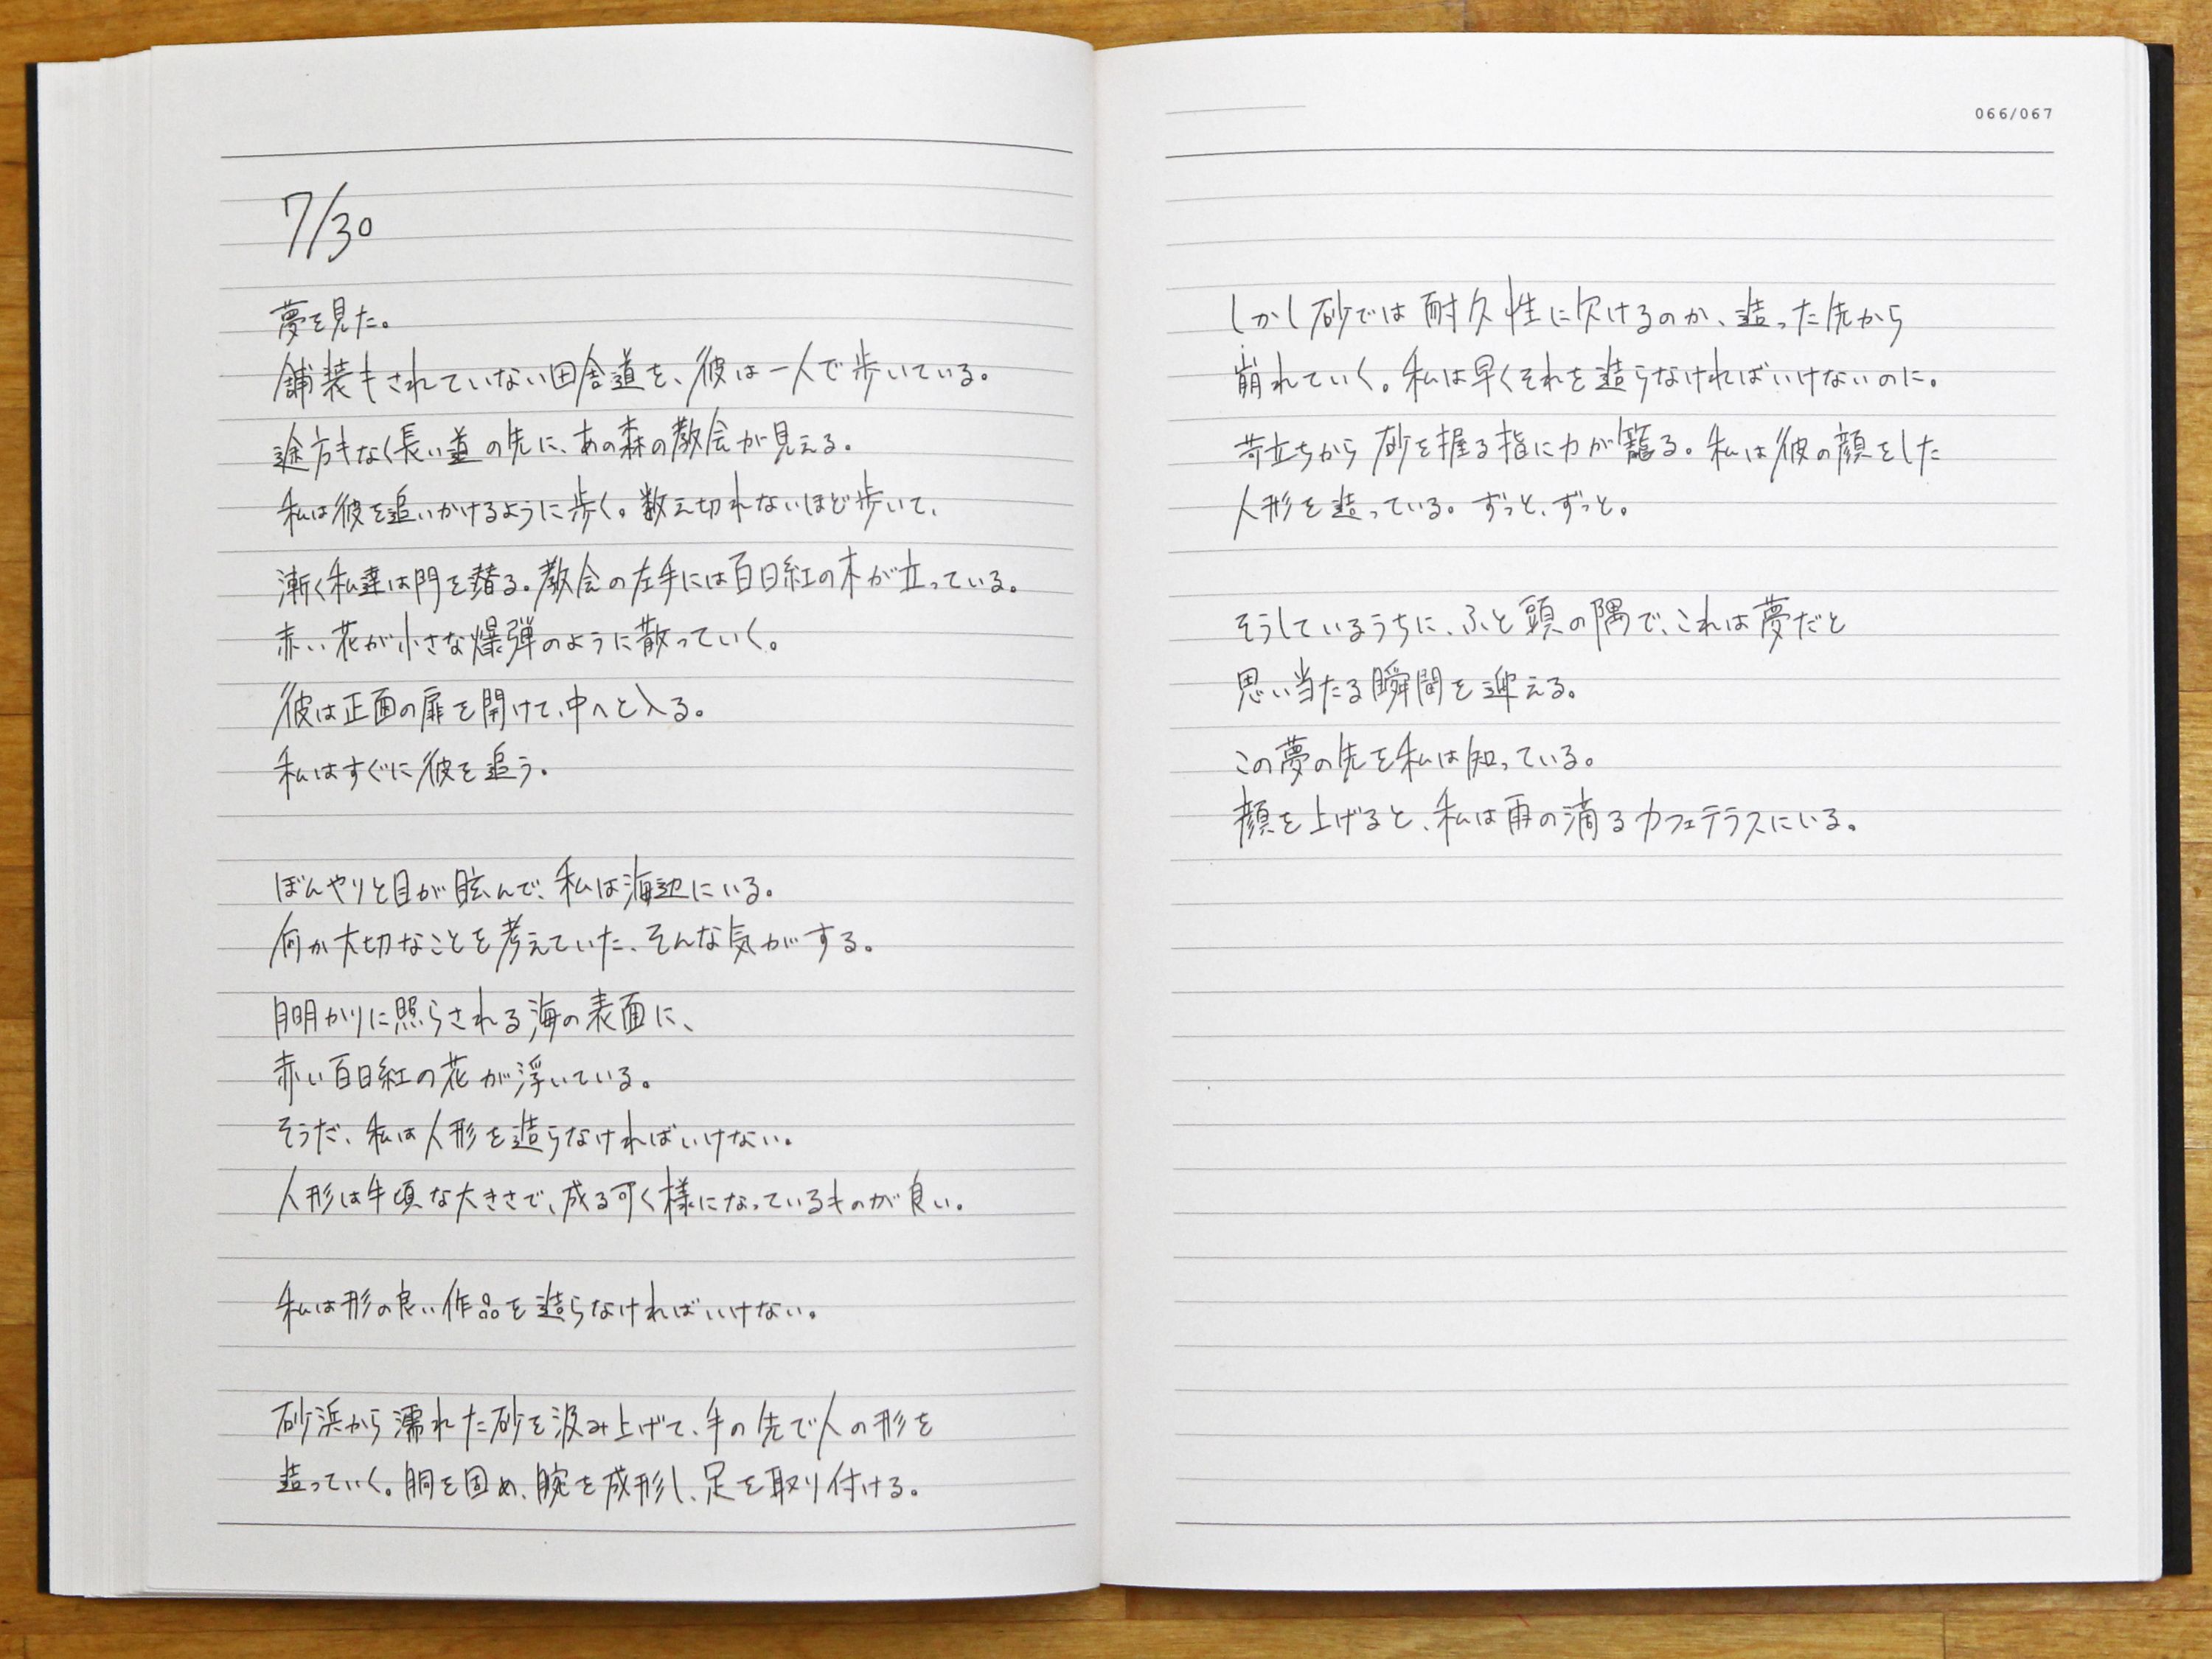 7/30
夢を見た。
舗装もされていない田舎道を、彼は一人で歩いている。
途方もなく長い道の先に、あの森の教会が見える。
私は彼を追いかけるように歩く。数え切れないほど歩いて、
漸く私達は門を潜る。教会の左手には百日紅の木が立っている。
赤い花が小さな爆弾のように散っていく。
彼は正面の扉を開けて、中へと入る。
私はすぐに彼を追う。
ぼんやりと目が眩んで、私は海辺にいる。
何か大切なことを考えていた、そんな気がする。
月明かりに照らされる海の表面に、
赤い百日紅の花が浮いている。
そうだ、私は人形を造らなければいけない。
人形は手頃な大きさで、成る可く様になっているものが良い。
私は形の良い作品を造らなければいけない。
砂浜から濡れた砂を汲み上げて、手の先で人の形を
造っていく。胴を固め、腕を成形し、足を取り付ける。
066/067
しかし砂では耐久性に欠けるのか、造った先から
崩れていく。私は早くそれを造らなければいけないのに。
苛立ちから砂を握る指に力が籠る。私は彼の顔をした
人形を造っている。ずっと、ずっと。
そうしているうちに、ふと頭の隅で、これは夢だと
思い当たる瞬間を迎える。
この夢の先を私は知っている。
顔を上げると、私は雨の滴るカフェテラスにいる。